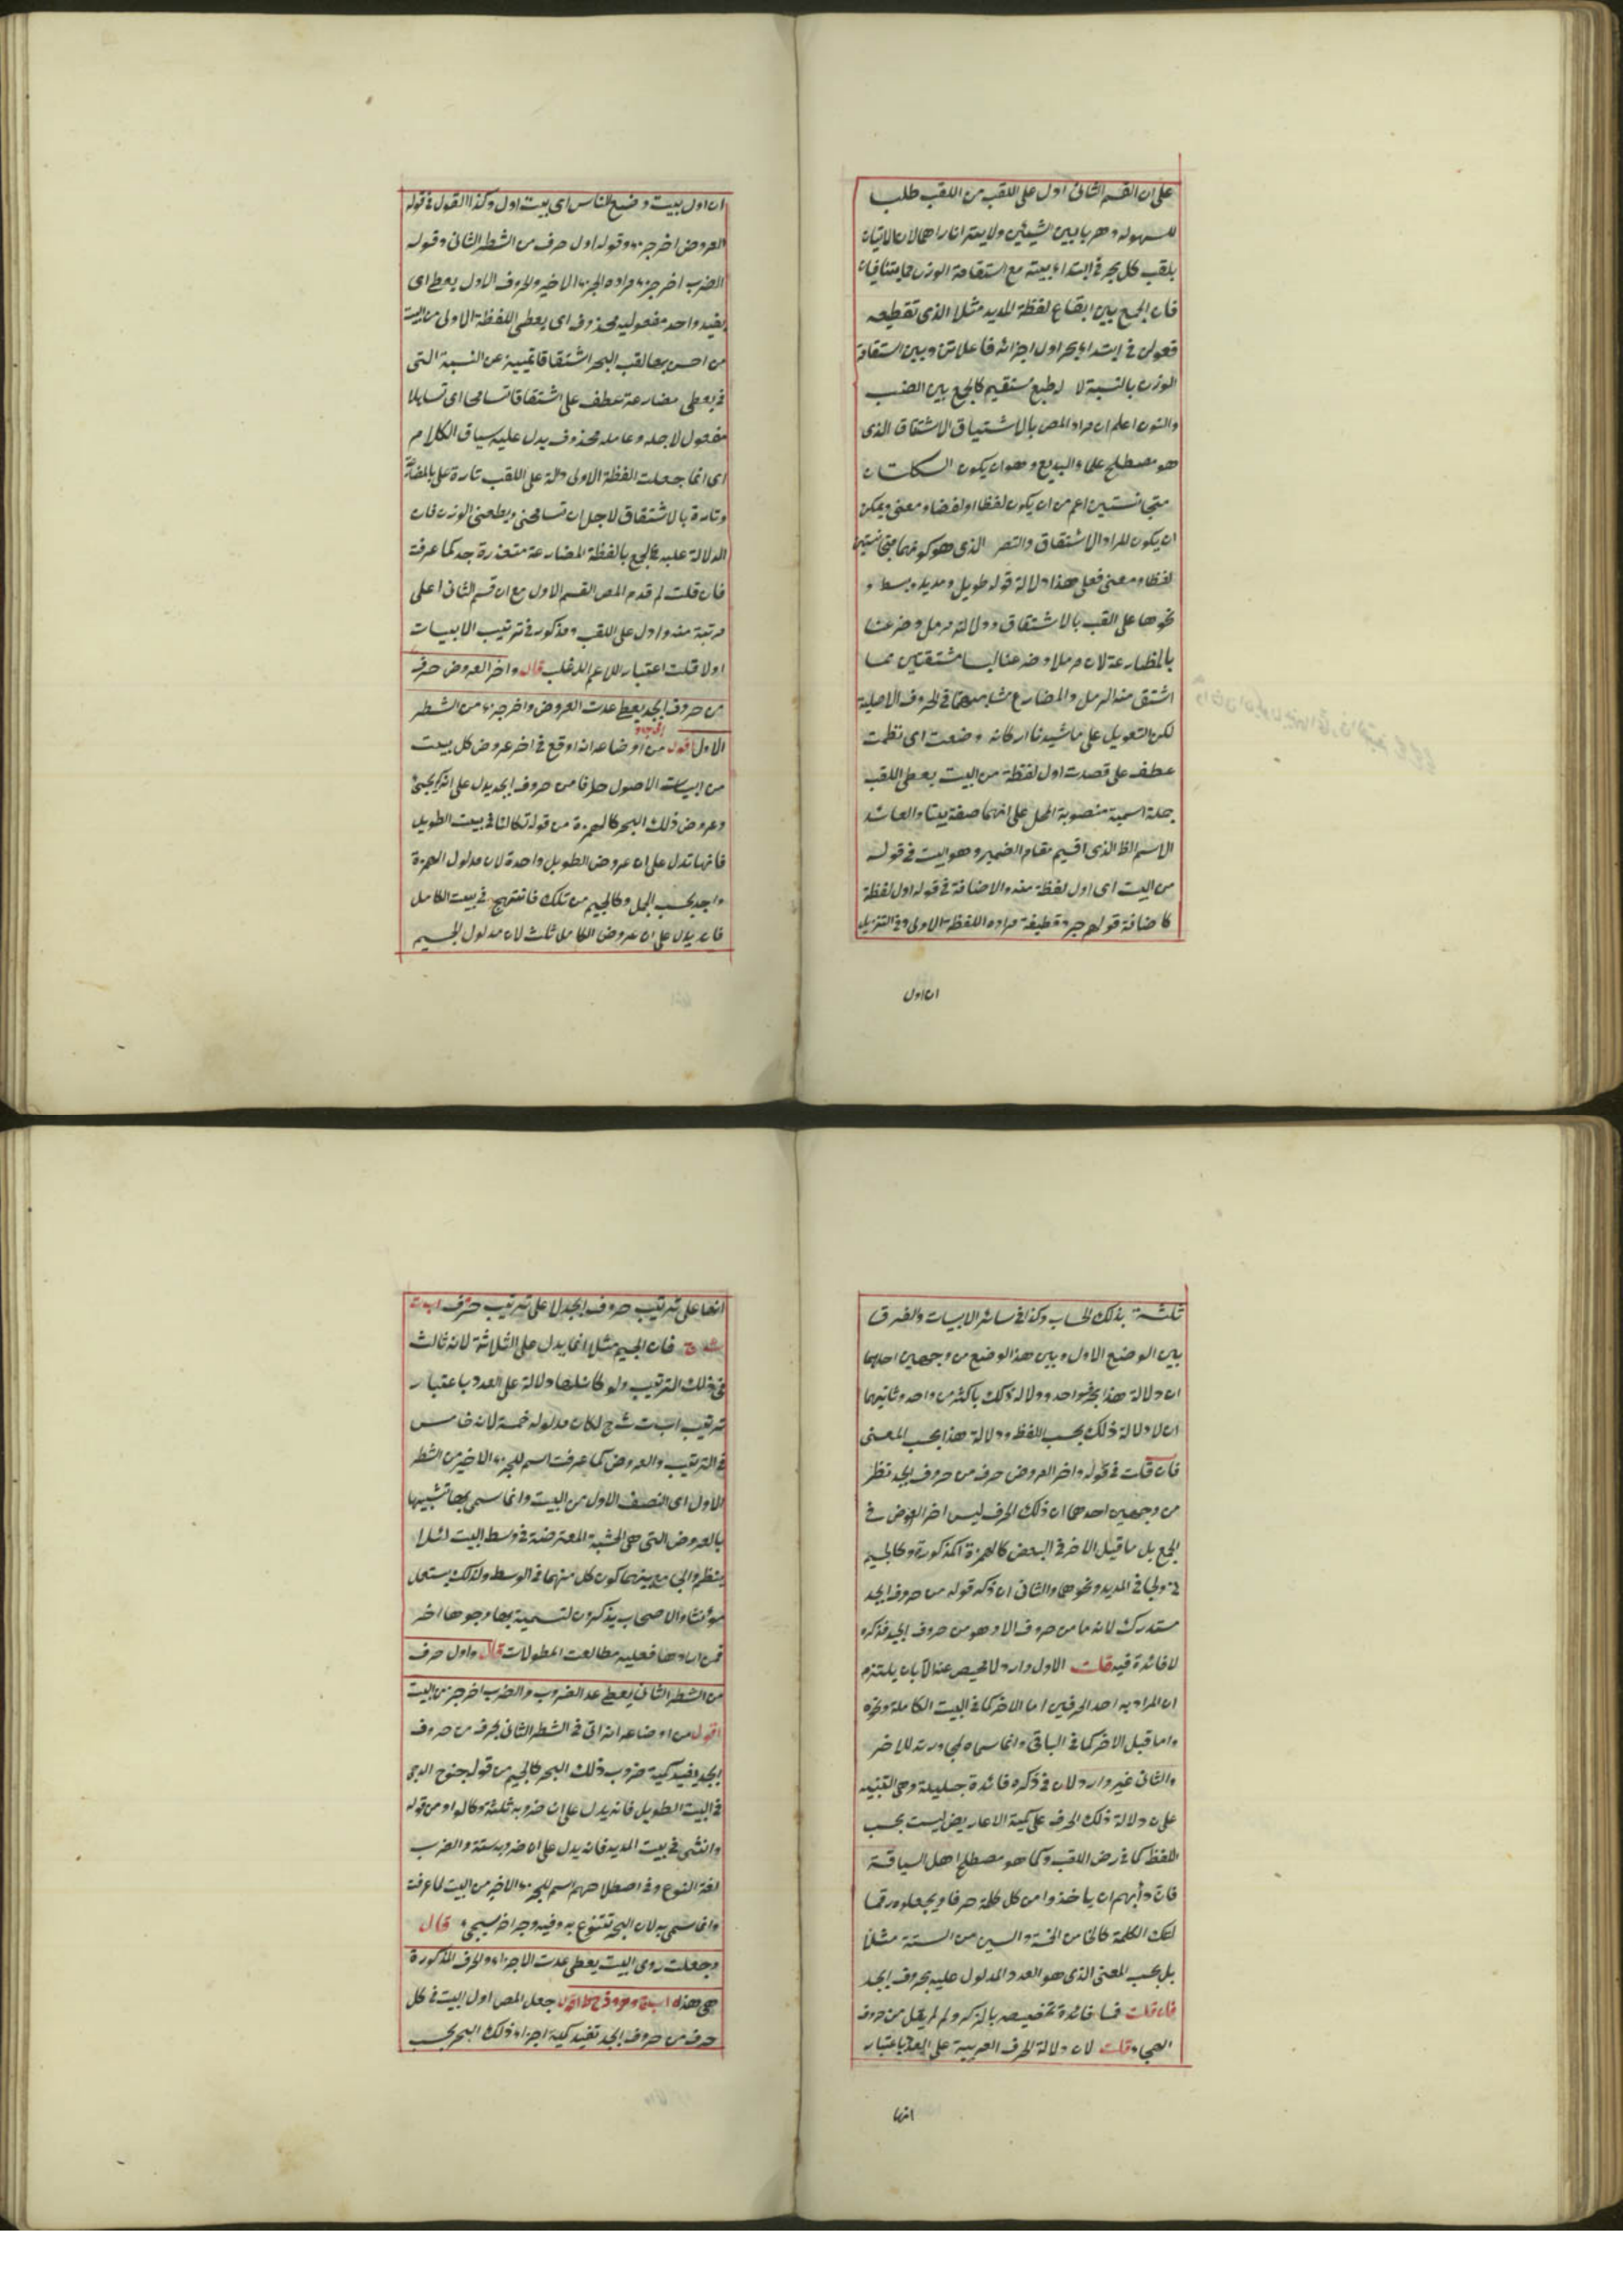 على ان القسم الثانى ادل على اللقب من اللقب طلب
للسهولة وهربا بين الشيئين ولا يعتر انا راهما لان الاتيان
بلقب كل بحر فى ابتداء بيته مع استقامة الوزن مما يتنافيان
فان الجمع بين ايقاع لفظة المديد مثلا الذى تقطيعه
فعولن فى ابتداء بحر اول اجزائه فاعلاتن وبين استقامة
الوزن بالنسبة لا لطبع مستقيم كالجمع بين الضب
والنون اعلم ان مراد المص بالاشتياق الاشتقاق الذى
هو مصطلح علماء البديع وهو ان يكون الكلمتان
متجانستين اعم من ان يكون لفظا او لفضا ومعنى ويمكن
ان يكون المراد الاشتقاق والتصر الذى هو كونهما متجانستين
لفظا ومعنى فعلى هذا دلالة قوله طويل ومديد وبسط و
نحوها على القب بالاشتقاق ودلالة مرمل وضرعنا
بالمظارعة لان مرملا وضرعنا ليسا مشتقين مما
اشتق منه الرمل والمضارع مشابهتهما فى الحروف الاصلية
لكن التعويل على ما شيدنا اركانه وضعت اى نظمت
عطف على قصدت اول لفظة من البيت يعطى اللقب
جملة اسمية منصوبة المحل على انهما صفة بيتا والعائد
الاسم الظ الذى اقيم مقام الضمير وهو البيت فى قوله
من البيت اى اول لفظة منه والاضافة فى قوله اول لفظة
كاضافة قولهم جرد قطيفة مراده اللفظة الاولى وفى التنزيل
ان اول
ان اول بيت وضع للناس اى بيت اول وكذا القول فى قوله
العروض اخر جزء وقوله اول حرف من الشطر الثانى وقوله
الضرب اخر جزء مراده الجزء الاخير والحروف الاول يعطى اى
يفيد واحد مفعوليه محذوف اى يعطى اللفظة الاولى من البيت
من احسن بها لقب البحر اشتقاقا تمييز عن النسبة التى
فى يعطى مضارعة عطف على اشتقاقا تسامحا اى تساهلا
مفعول لاجله وعامله محذوف يدل عليه سياق الكلام
اى انما جعلت الفظة الاولى دالة على اللقب تارة على بالمضارعة
وتارة بالاشتقاق لاجل ان تسامحنى ويطعنى الوزن فان
الدلالة عليه فى الجمع بالفظة المضارعة متعذرة جد كما عرفت
فان قلت لم قدم المص القسم الاول مع ان قسم الثانى اعلى
مرتبة منه وادل على اللقب ومذكور فى ترتيب الابيات
اولا قلت اعتبار للاعم الاغلب قال واخر العروض حرف
من حروف ابجد يعطى عدت العروض واخر جزء من الشطر
الاول اقول من اوضاعه انه اوقع فى اخر عروض كل بيت
من ابيات الاصول حرفا من حروف ابجد يدل على انه كم يجئ
وعروض ذلك البحر كالهمزة من قوله تكالنا فى بيت الطويل
فانها تدل على ان عروض الطويل واحدة لان مدلول الهمزة
واحد بحسب الجمل وكالجيم من تلك فانتهج فى بيت الكامل
فانه يدل على ان عروض الكامل ثلث لان مدلول الجيم
ثلثة بذلك الحساب وكذا فى سائر الابيات والفرق
بين الوضع الاول وبين هذا الوضع من وجهين احدهما
ان دلالة هذا بحرف واحد ودلالة ذلك باكثر من واحد وثانيهما
ان لا دلالة ذلك بحسب اللفظ ودلالة هذا بحسب المعنى
فان قلت فى قوله واخر العروض حرف من حروف ابجد نظر
من وجهين احدهما ان ذلك الحرف ليس اخر العروض فى
الجمع بل ما قبل الاخر فى البعض كالهمزة المذكورة وكالجيم
فى ولجا فى المديد ونحوهما والثانى ان ذكر قوله من حروف ابجد
مستدرك لانه ما من حروف الا وهو من حروف ابجد فذكره
لا فائدة فيه قلت الاول وارد لا محيص عنه الا بان يلتزم
ان المراد به احد الحرفين اما الاخر كما فى البيت الكاملة ونحوه
واما قبل الاخر كما فى الباقى وانما سماه لمجاورته للاخر
والثانى غير وارد لان فى ذكره فائدة جليلة وهى التنبيه
على ان دلالة ذلك الحرف على كمية الاعاريض ليست بحسب
اللفظ كما فى رض اللاقب وكما هو مصطلح اهل السياقة
فان دأبهم ان ياخذوا من كل كلمة حرفا ويجعلوه رقما
لتلك الكلمة كالخا من الخمسة والسين من الستة مثلا
بل بحسب المعنى الذى هو العدد المدلول عليه بحروف ابجد
فان قلت فما فائدة تخصيصه بالذكر ولم لم يقل من حروف
الهجاء قلت لان دلالة الحرف العربية على العدد باعتبار
انها
انها على ترتيب حروف ابجد لا على ترتيب حرف ا ب ت
ث ج فان الجيم مثلا انما يدل على الثلاثة لانه ثالث
فى ذلك الترتيب ولو كانت لها دلالة على العدد باعتبار
ترتيب ا ب ت ث ج لكان مدلوله خمسة لانه خامس
فى الترتيب والعروض كما عرفت اسم للجزء الاخير من الشطر
الاول اى النصف الاول من البيت وانما سمى بها تشبيها
بالعروض التى هى الخشبة المعترضة فى وسط البيت لئلا
ينظر والجامع بينهما كون كل منهما فى الوسط ولذلك يستعمل
مؤنثا والاصحاب يذكرون لتسمية بها وجوها اخر
فمن ارادها فعليه مطالعت المطولات قال واول حرف
من الشطر الثانى يعطى عد الضروب والضرب اخر جزء من البيت
اقول من اوضاعه انه اتى فى الشطر الثانى بحرف من حروف
ابجد يفيد كمية ضروب ذلك البحر كالجيم من قوله جنوح الدجى
فى البيت الطويل فانه يدل على ان ضروبه ثلثة وكالواو من قوله
وانثنى فى بيت المديد فانه يدل على ان ضروبه ستة والضرب
لغة النوع وفى اصطلاحهم اسم للجزء الاخير من البيت لما عرفت
وانما سمى به لان البحر تتنوع به وفيه وجه اخر سيجئ قال
وجعلت روى البيت يعطى عدت الاجزاء والحرف المذكورة
هى هذه ا ب ج د ه و ز ح ط اقول جعل المص اول البيت فى كل
حرف من حروف ابجد تفيد كمية اجزاء ذلك البحر بحسب